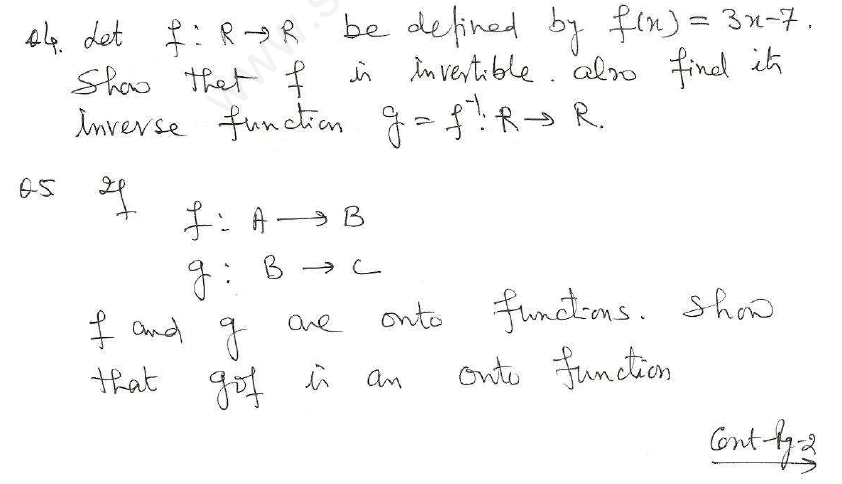 Q4. Let f : R → R be defined by f(x) = 3x-7.
Show that f is invertible. also find its
inverse function g = f⁻¹: R → R.
Q5 If
f : A → B
g : B → C
f and g are onto functions. Show
that gof is an onto function
Cont-Pg-2